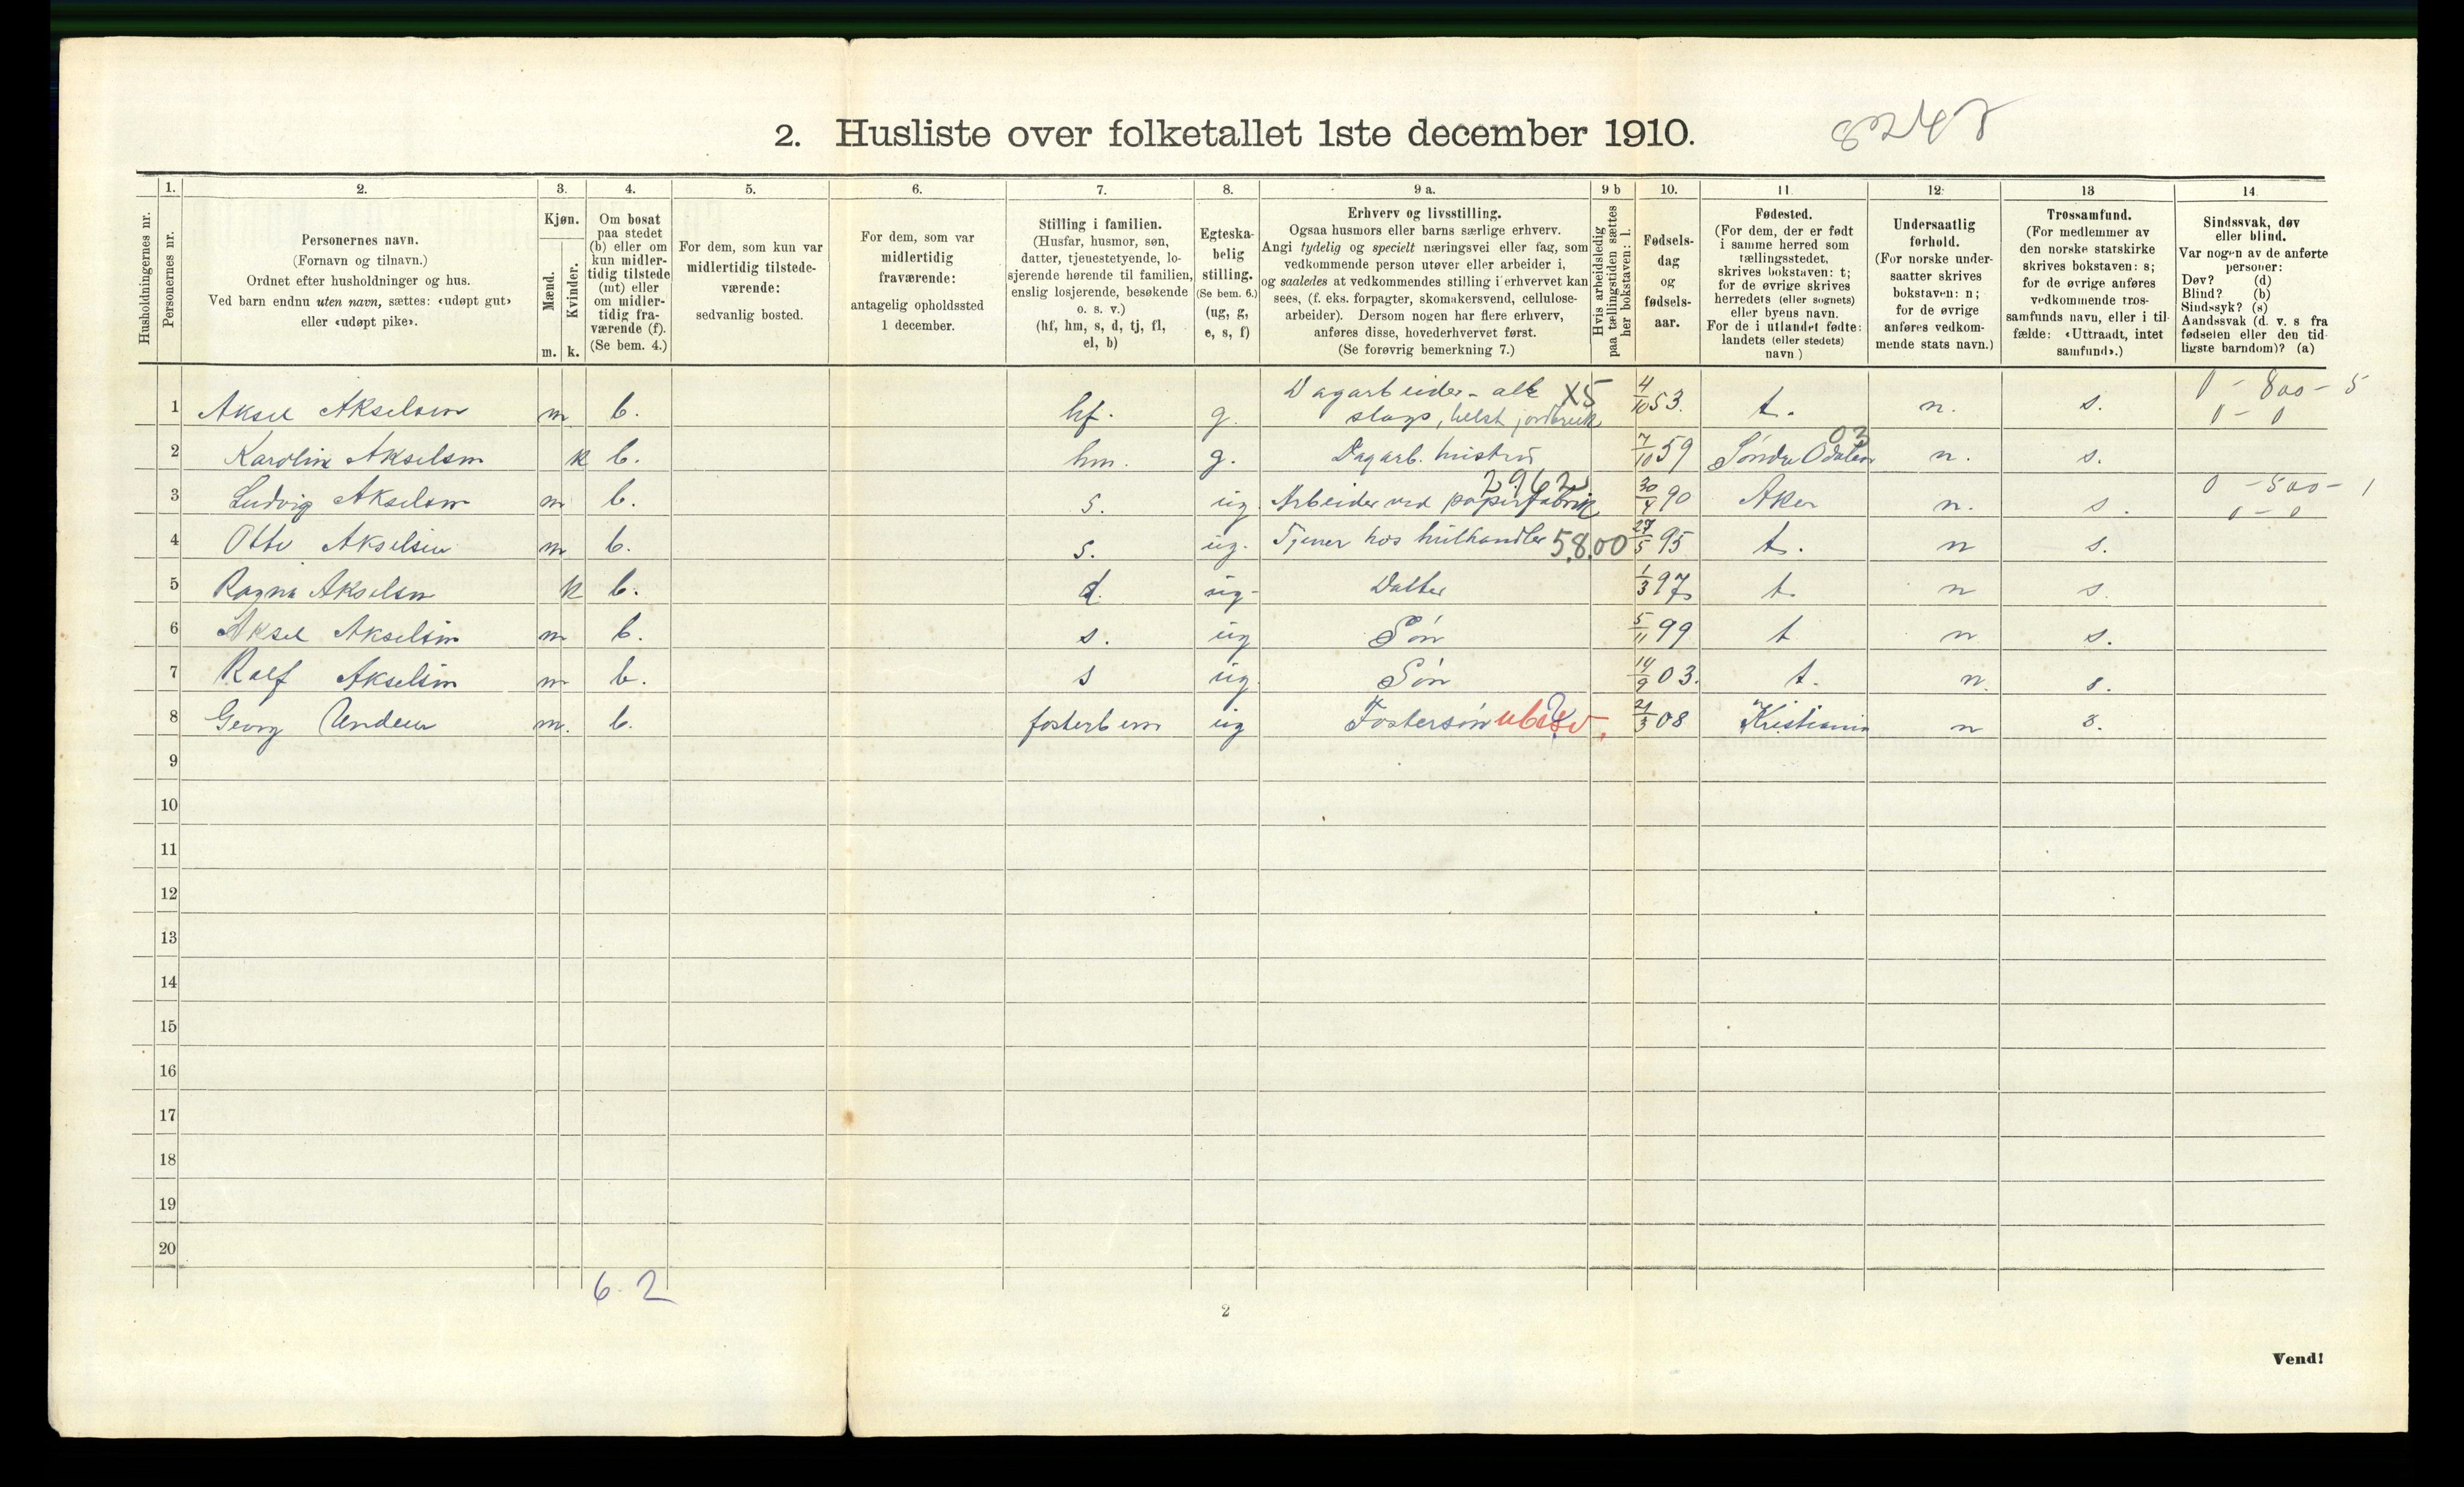 2. Husliste over folketallet 1ste december 1910.
8248
Husholdningernes nr.
1.
Personernes nr.
2.
Personernes navn.
(Fornavn og tilnavn.)
Ordnet efter husholdninger og hus.
Ved barn endnu uten navn, sættes: «udøpt gut»
eller «udøpt pike».
3.
Kjøn.
Mænd.
Kvinder.
m. k.
4.
Om bosat
paa stedet
(b) eller om
kun midler-
tidig tilstede
(mt) eller
om midler-
tidig fra-
værende (f).
(Se bem. 4.)
5.
For dem, som kun var
midlertidig tilstede-
værende:
sedvanlig bosted.
6.
For dem, som var
midlertidig
fraværende:
antagelig opholdssted
1 december.
7.
Stilling i familien.
(Husfar, husmor, søn,
datter, tjenestetyende, lo-
sjerende hørende til familien,
enslig losjerende, besøkende
o. s. v.)
(hf, hm, s, d, tj, fl,
el, b)
8.
Egteska-
belig
stilling.
(Se bem. 6.)
(ug, g,
e, s, f)
9 a.
Erhverv og livsstilling.
Ogsaa husmors eller barns særlige erhverv.
Angi tydelig og specielt næringsvei eller fag, som
vedkommende person utøver eller arbeider i,
og saaledes at vedkommendes stilling i erhvervet kan
sees, (f. eks. forpagter, skomakersvend, cellulose-
arbeider). Dersom nogen har flere erhverv,
anføres disse, hovederhvervet først.
(Se forøvrig bemerkning 7.)
9 b
Hvis arbeidsledig
paa tællingstiden sættes
her bokstaven: l.
10.
Fødsels-
dag
og
fødsels-
aar.
11
Fødested.
(For dem, der er født
i samme herred som
tællingsstedet,
skrives bokstaven: t;
for de øvrige skrives
herredets (eller sognets)
eller byens navn.
For de i utlandet fødte:
landets (eller stedets)
navn.)
12
Undersaatlig
forhold.
(For norske under-
saatter skrives
bokstaven: n;
for de øvrige
anføres vedkom-
mende stats navn.)
13
Trossamfund.
(For medlemmer av
den norske statskirke
skrives bokstaven: s;
for de øvrige anføres
vedkommende tros-
samfunds navn, eller i til-
fælde: «Uttraadt, intet
samfund».)
14
Sindssvak, døv
eller blind.
Var nogen av de anførte
personer:
Døv? (d)
Blind? (b)
Sindssyk? (s)
Aandssvak (d. v. s fra
fødselen eller den tid-
ligste barndom)? (a)
1 Aksel Akselsen m b. hf. g. Dagarbeider - alle X5 4/10 53. t. n. s. 0 - 800 - 5
slags, helst jordbruk 0 - 0
2 Karoline Akselsen k b. hm. g. Dagarb. hustru 7/10 59 Søndre Odalen 03 n. s.
3 Ludvig Akselsen m b. s. ug Arbeider ved papirfabrik 2962 30/4 90 Aker n. s. 0 - 500 - 1
0 - 0
4 Otto Akselsen m b. s. ug. Tjener hos hvithandler 58.00 27/5 95 t. n s.
5 Ragna Akselsen k b. d. ug- Datter 1/3 97 t. n s.
6 Aksel Akselsen m b. s. ug Søn 5/11 99 t n s.
7 Rolf Akselsen m b. s ug. Søn 14/9 03. t. n. s.
8 Georg m. b. fosterbarn ug Fostersøn 21/3 08 Kristiania n s.
9
10
11
12
13
14
15
16
17
18
19
20
6 - 2
2
Vend!